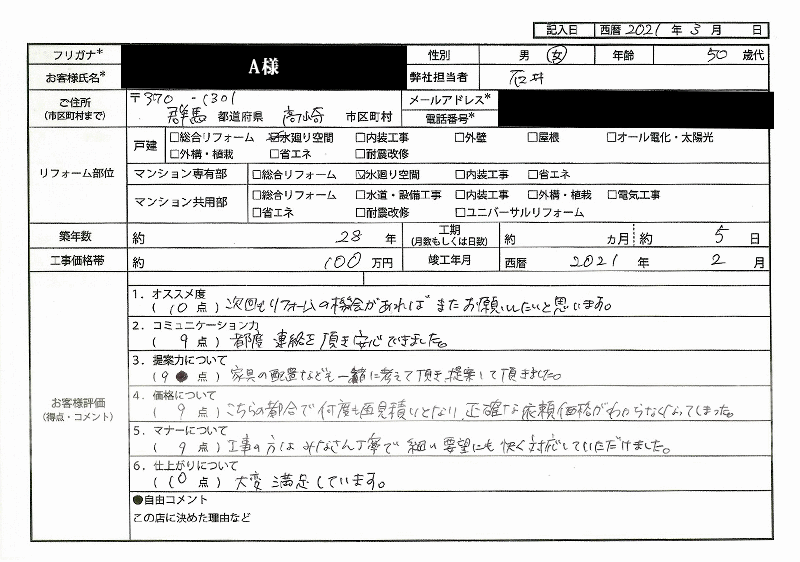 記入日 西暦 2021 年 3 月 日
フリガナ* A様 性別 男 女 年齢 50 歳代
お客様氏名* 弊社担当者 石井
ご住所 〒370-1301 メールアドレス*
(市区町村まで) 群馬 都道府県 高崎 市区町村 電話番号*
リフォーム部位
戸建 □総合リフォーム ☑水廻り空間 □内装工事 □外壁 □屋根 □オール電化・太陽光
□外構・植栽 □省エネ □耐震改修
マンション専有部 □総合リフォーム ☑水廻り空間 □内装工事 □省エネ
マンション共用部 □総合リフォーム □水道・設備工事 □内装工事 □外構・植栽 □電気工事
□省エネ □耐震改修 □ユニバーサルリフォーム
築年数 約 28 年 工期 (月数もしくは日数) 約 ヵ月 約 5 日
工事価格帯 約 100 万円 竣工年月 西暦 2021 年 2 月
お客様評価
(得点・コメント)
1．オススメ度
( 10 点 ) 次回もリフォームの機会があればまたお願いしたいと思います。
2．コミュニケーション力
( 9 点 ) 都度連絡を頂き安心できました。
3．提案力について
( 9 点 ) 家具の配置なども一緒に考えて頂き、提案して頂きました。
4．価格について
( 9 点 ) こちらの都合で何度も再見積りとなり、正確な依頼価格がわからなくなってしまった。
5．マナーについて
( 9 点 ) 工事の方はみなさん丁寧で細い要望にも快く対応していただけました。
6．仕上がりについて
( 10 点 ) 大変満足しています。
●自由コメント
この店に決めた理由など